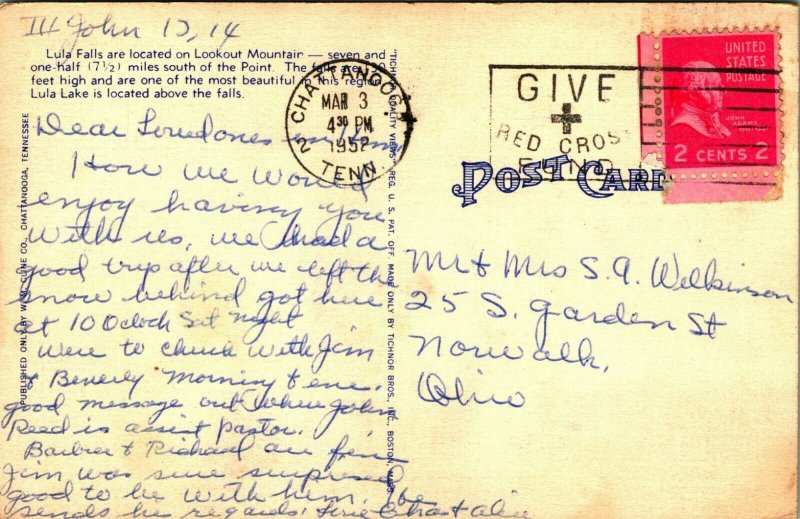 III John 13, 14
Lula Falls are located on Lookout Mountain — seven and
one-half (7½) miles south of the Point. The falls are
feet high and are one of the most beautiful in this region.
Lula Lake is located above the falls.
CHATTANOOGA
MAR 3
4 30 PM
1952
2 TENN
GIVE
RED CROSS
FUND
UNITED
STATES
POSTAGE
JOHN
ADAMS
2 CENTS 2
POST CARD
PUBLISHED ONLY BY W. M. CLINE CO., CHATTANOOGA, TENNESSEE
"TICHNOR QUALITY VIEWS," REG. U. S. PAT. OFF. MADE ONLY BY TICHNOR BROS., INC., BOSTON, MASS.
Dear Loved ones in Him
How we would
enjoy having you
with us, we had a
good trip after we left the
snow behind got here
at 10 Oclock Sat night
Were to church with Jim
& Beverly morning & eve.
good message out where John
Reed is assist pastor.
& Richard are fine
Jim was sure surprised
good to be with him. Joe
sends his regards.
Mr & Mrs S. A. Wilkinson
25 S. Garden St
Norwalk,
Ohio